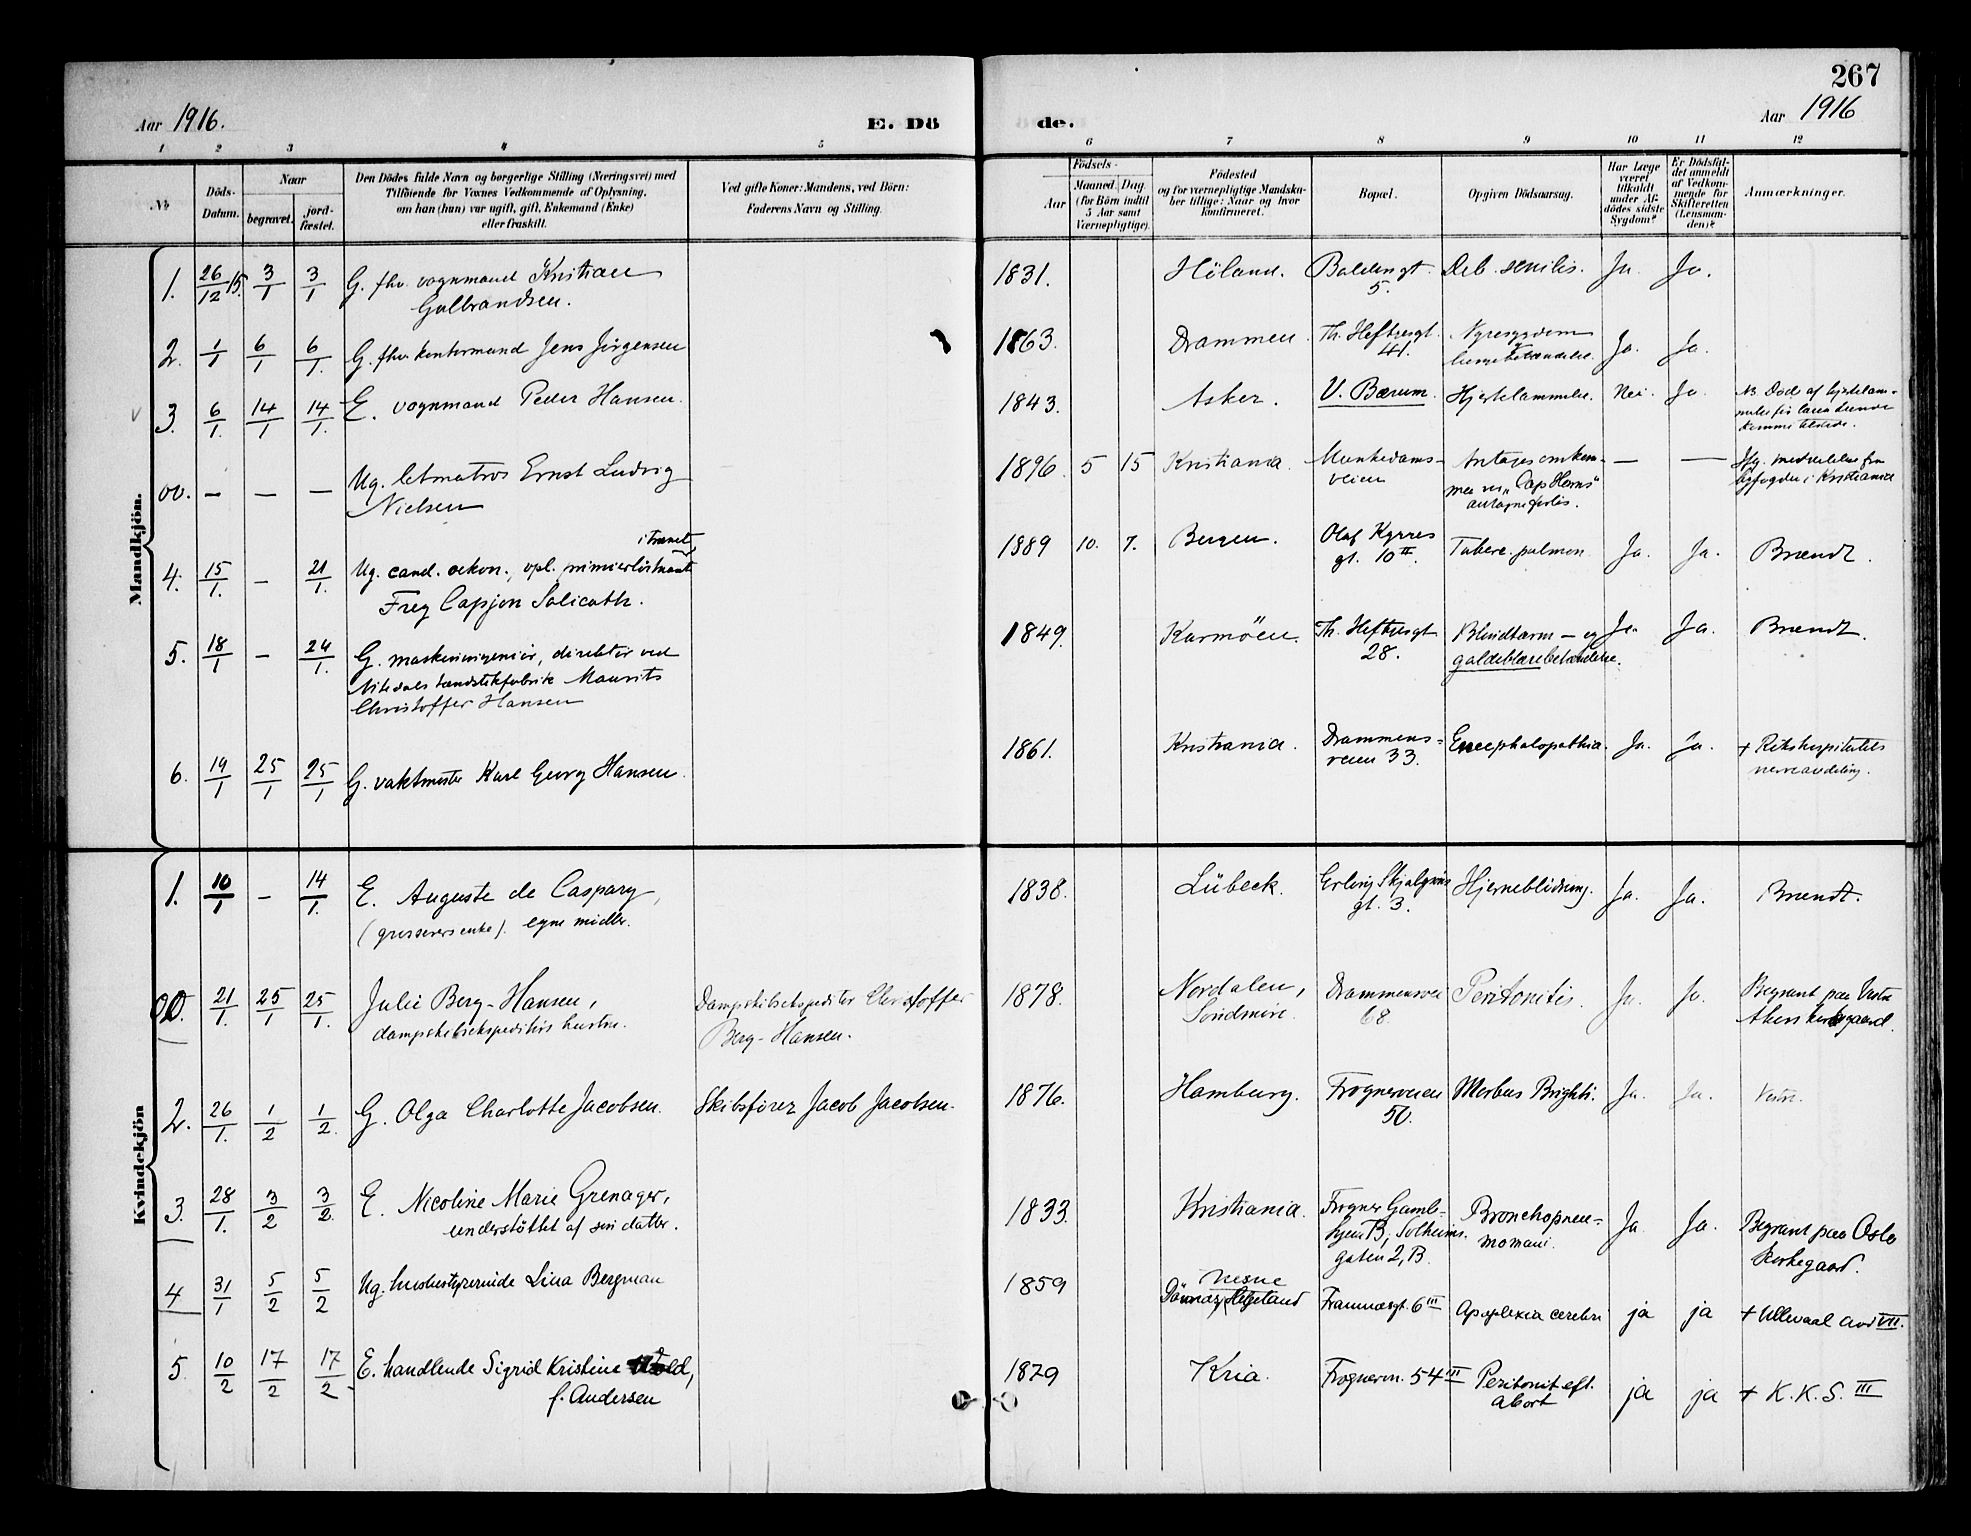 267
Aar 1916.
E. Dö
de.
Aar 1916
1 2 3 4 5 6 7 8 9 10 11 12
№
Döds-Datum.
Naar
begravet.
jord-fæstet.
Den Dödes fulde Navn og borgerlige Stilling (Næringsvei) med
Tilföiende for Voxnes Vedkommende af Oplysning,
om han (hun) var ugift, gift, Enkemand (Enke)
eller fraskilt.
Ved gifte Koner: Mandens, ved Börn:
Faderens Navn og Stilling.
Födsels-
Aar
Maaned. Dag.
(for Börn indtil
5 Aar samt
Værnepligtige).
Födested
og for værnepligtige Mandska-
ber tillige: Naar og hvor
konfirmeret.
Bopæl.
Opgiven Dödsaarsag.
Har Læge
været
tilkaldt
under Af-
dödes sidste
Sygdom?
Er Dödsfal-
det anmeldt
af Vedkom-
mende for
Skifteretten
(Lensman-
den)?
Anmærkninger.
Mandkjön.
1. 26/12 15. 3/1 3/1 G. fhv. vognmand Kristian
Gulbrandsen.
1831. Höland. Baldersgt. 5. Deb. senilis. Ja. Ja.
2. 1/1 6/1 6/1. G. fhv. kontormand Jens Jörgensen
1863. Drammen. Th. Heftyesgt. 41. Nyresygdom
Ja. Ja.
3. 6/1. 14/1 14/1. E. vognmand Peder Hansen.
1843. Asker. V. Bærum. Hjertelammelse. Nei. Ja. NB Död af hjertelam-
melse för
oo. — — — Ug. letmatros Ernst Ludvig
Nielsen
1896. 5 15 Kristiania. Munkedams-
veien Antages omkom-
met „Cap Horns"
— — Ifg. meddelelse fra
byfogden i Kristiania
4. 15/1. — 21/1. Ug. cand. oekon., vpl. premierlöitnant i trænet
Frey Capjon Salicath.
1889 10. 7. Bergen. Olaf Kyrres
gt. 10 II. Tuberc. pulmon. Ja. Ja. Brændt.
5. 18/1 — 24/1. G. maskiningeniör, direktör ved
Nitedals tændstikfabrik Maurits
Christoffer Hansen
1849. Karmöen. Th. Heftyesgt
28. Blindtarm — og
galdeblærebetændelse. Ja. Ja. Brændt.
6. 19/1 25/1 25/1 G. vaktmester Karl Georg Hansen.
1861. Kristiania. Drammens-
veien 33. Encephalopathia. Ja. Ja. + Rikshospitalets
nerveavdeling.
Kvindekjön
1. 10/1 — 14/1. E. Auguste de Caspary,
(grosserersenke). egne midler.
1838. Lübeck. Erling Skjalgsöns
gt. 3. Hjerneblödning. Ja. Ja. Brændt.
00. 21/1. 25/1 25/1. Julie Berg-Hansen,
dampskibsekspeditörs hustru.
Dampskibsekspeditör Christoffer
Berg-Hansen.
1878. Nordalen,
Söndmöre. Drammensvei
68. Peritonitis. Ja. Ja. Begravet paa Vestre
Akers kirkegaard.
2. 26/1. 1/2 1/2. G. Olga Charlotte Jacobsen.
Skibsförer Jacob Jacobsen.
1876. Hamburg. Frogneveien
50. Morbus Brighti. Ja. Ja. Vestre.
3. 28/1. 3/2 3/2. E. Nicoline Marie Grenager,
understöttet af sin datter.
1833. Kristiania. Frogner Gamle-
hjem B, Solheims-
gaten 2, B. Bronchopneu-
momani. Ja. Ja. Begravet paa Oslo
kirkegaard.
4 31/1 5/2 5/2 Ug. husbestyrerinde Lina Bergman
1859 Nesne
Dönnæs, Helgeland Framnæsgt. 6 III Apoplexia cerebri ja ja + Ullevaal avd VII.
5 10/2 17/2 17/2 E. handlende Sigrid Kristine
f. Andersen
1879 Kria. Frognervn. 54 III Peritonit eft.
abort ja ja + K. K. S. III